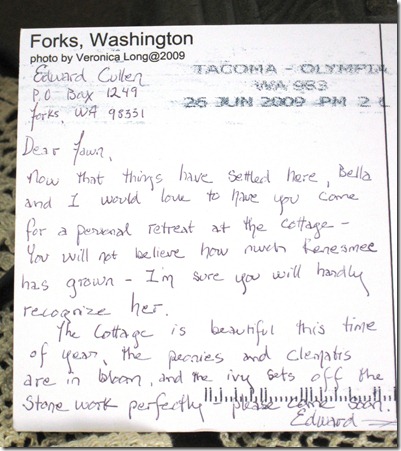 Forks, Washington
photo by Veronica Long@2009
Edward Cullen
P.O Box 1249
Forks, WA 98331
TACOMA - OLYMPIA
WA 983
26 JUN 2009 PM 2
Dear Fawn,
Now that things have settled here, Bella
and I would love to have you come
for a personal retreat at the Cottage -
You will not believe how much Renesmee
has grown - I'm sure you will hardly
recognize her.
The Cottage is beautiful this time
of year, the peonies and Clematis
are in bloom, and the ivy sets off the
Stone work perfectly - please come soon.
Edward